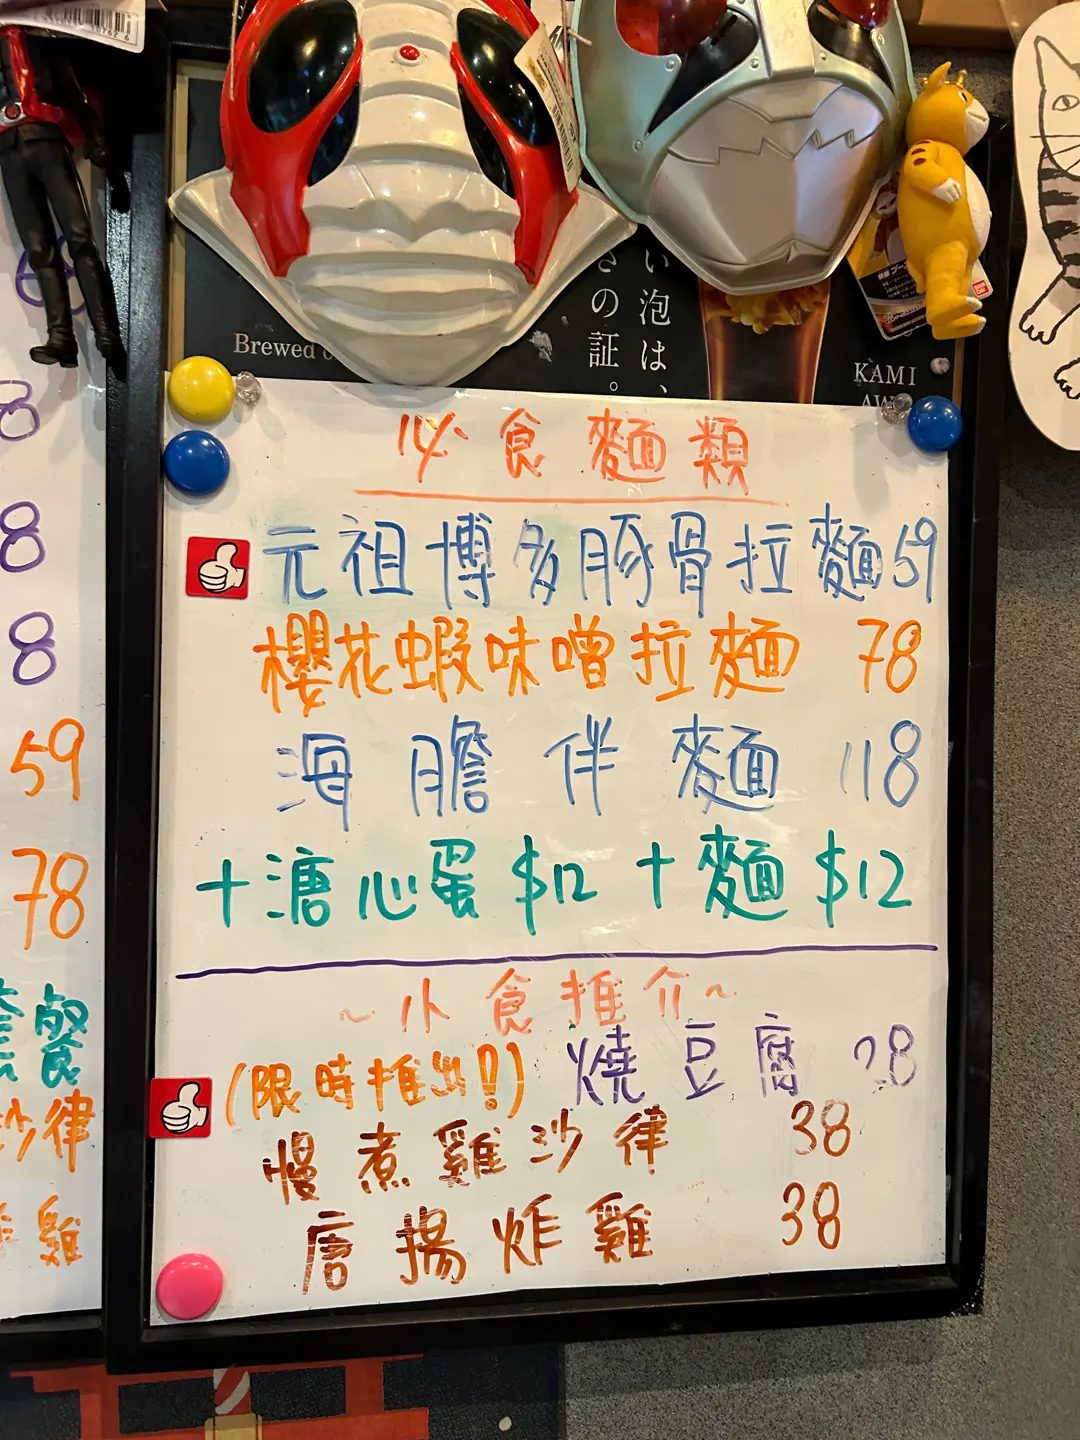 い泡は、
さの証。
Brewed
KAMI
AW
必食麵類
元祖博多豚骨拉麵 59
櫻花蝦味噌拉麵 78
海膽伴麵 118
+溏心蛋 $12 +麵 $12
~小食推介~
(限時推出!) 燒豆腐 28
慢煮雞沙律 38
唐揚炸雞 38
8
8
8
59
78
套餐
沙律
雞